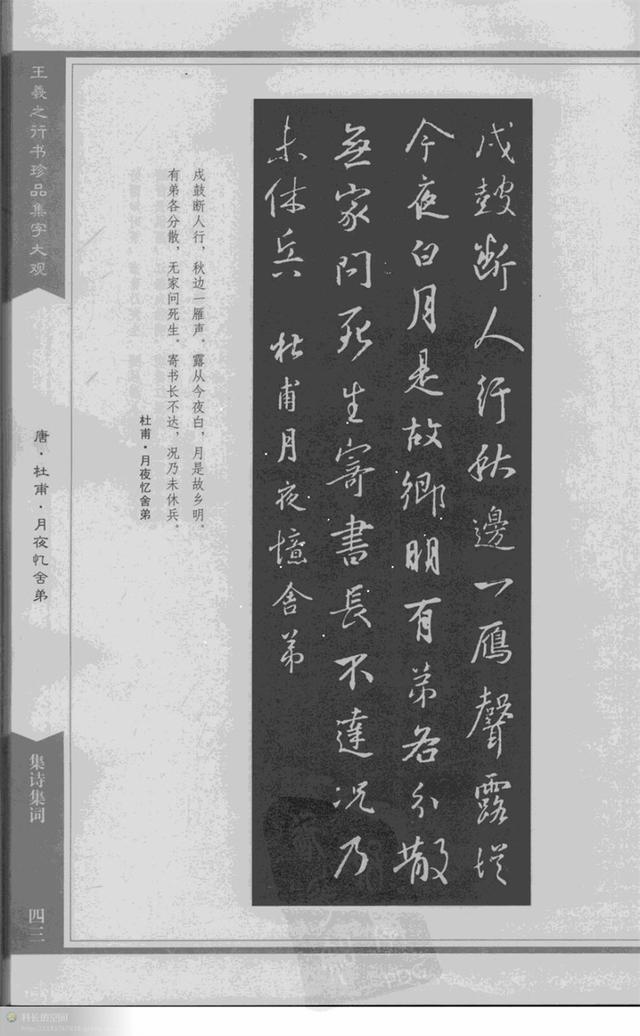 戍鼓斷人行秋邊一鴈聲露從
今夜白月是故鄉明有弟各分散
無家問死生寄書長不達況乃
未休兵 杜甫月夜憶舍弟
戍鼓断人行，秋边一雁声。露从今夜白，月是故乡明。
有弟各分散，无家问死生。寄书长不达，况乃未休兵。
杜甫·月夜忆舍弟
王羲之行书珍品集字大观
唐·杜甫·月夜忆舍弟
集诗集词
四三
科长的空间